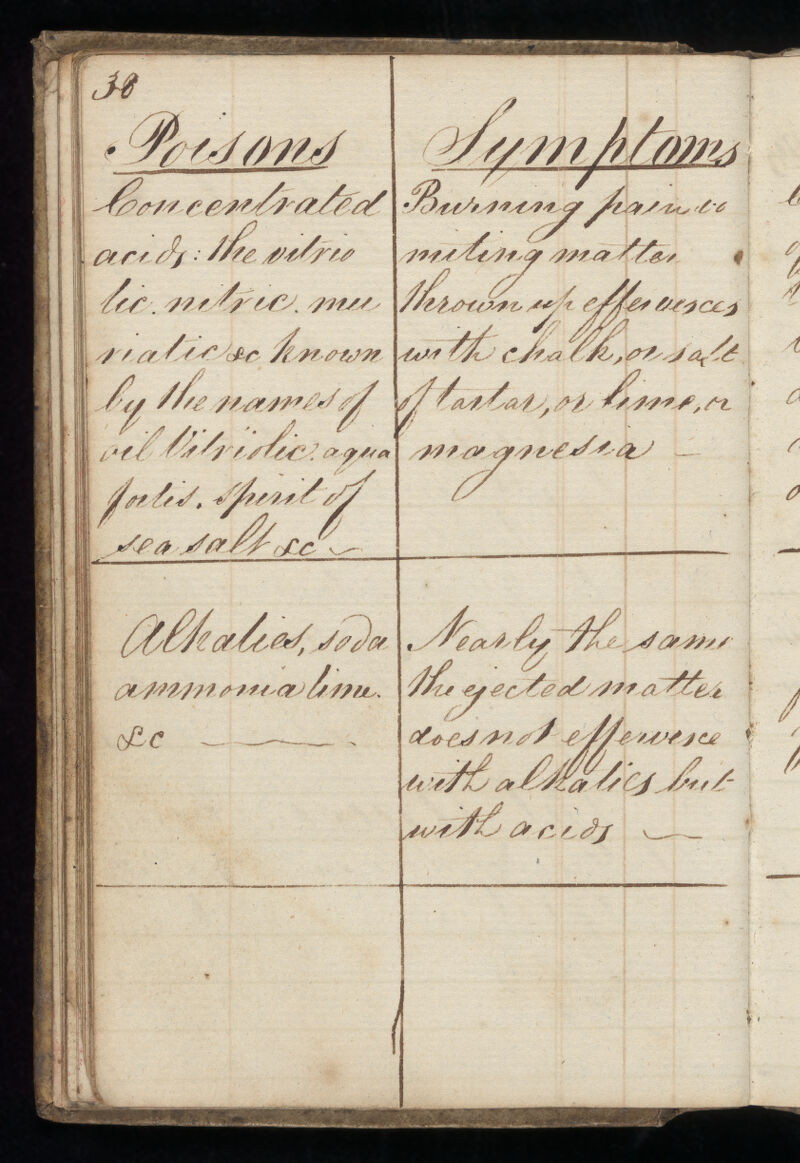 38
Poisons
Concentrated
acids: the vitrio
lic. nitric. mu
riatic &c known
by the names of
oil Vitriolic. aqua
fortis. spirit of
sea salt &c
Alkalies, soda
ammonia lime.
&c
Symptoms
Burning pain vo
miting matter
thrown up effervesces
with chalk, or salt
of tartar, or lime, or
magnesia
Nearly the same
the ejected matter
does not effervesce
with alkalies but
with acids